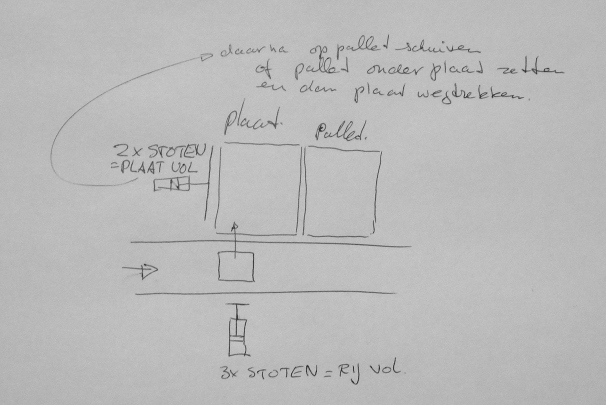 daarna op pallet schuiven
of pallet onder plaat zetten
en dan plaat wegtrekken.
plaat. Pallet.
2x STOTEN
=PLAAT VOL
3x STOTEN = RIJ VOL.